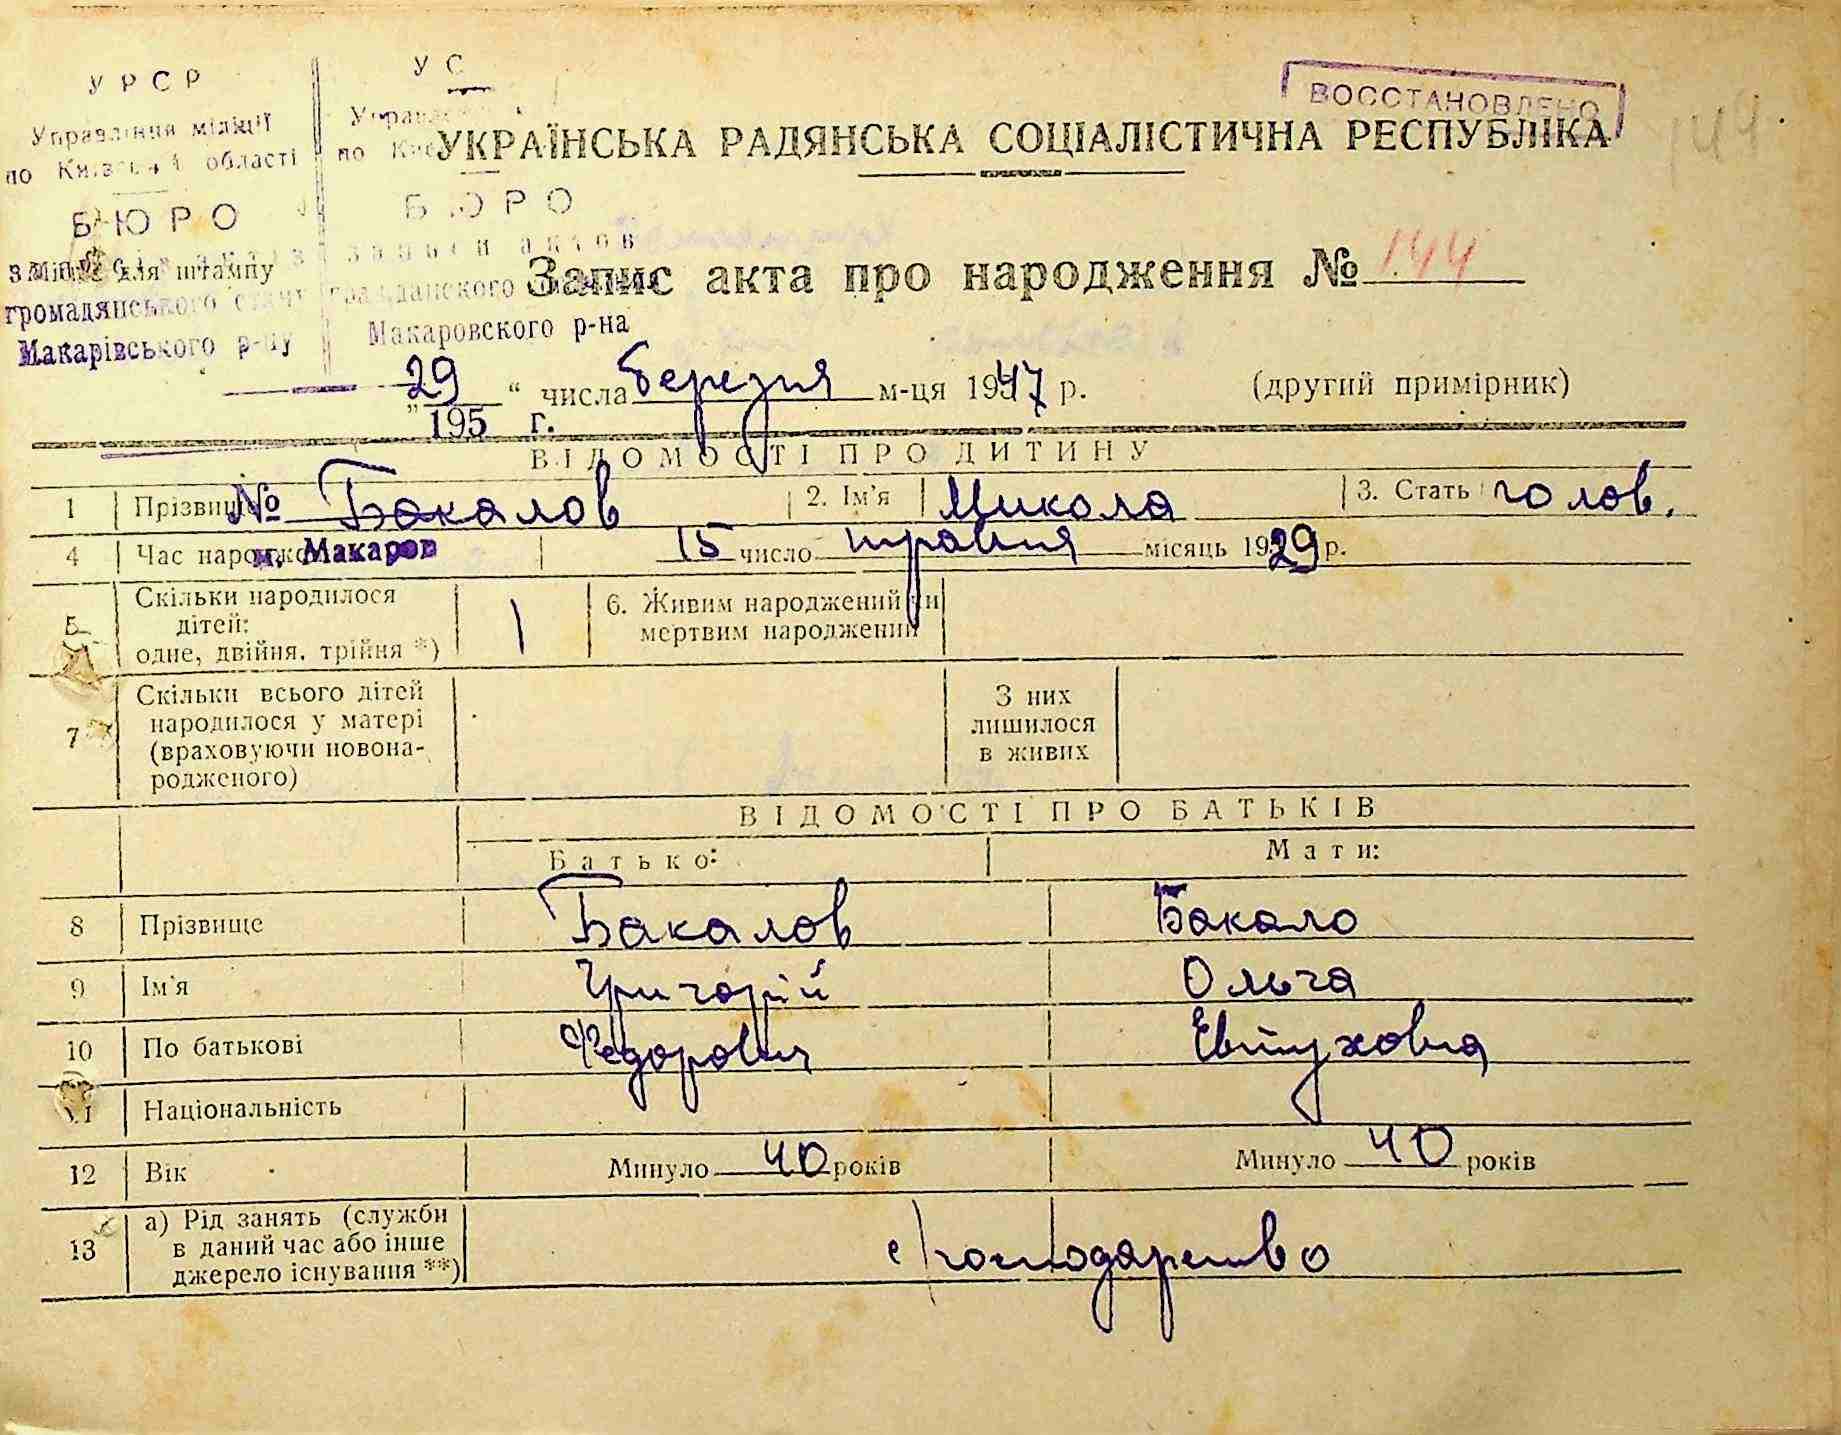 УРСР
Управління міліції
по Київській області
БЮРО
громадянського стану
Макарівського р-ну
УС
по
БЮРО
записи актов
гражданского
Макаровского р-на
195 г.
№
м. Макаров
ВОССТАНОВЛЕНО
УКРАЇНСЬКА РАДЯНСЬКА СОЦІАЛІСТИЧНА РЕСПУБЛІКА
Місце для штампу
Запис акта про народження № 144
„ 29 “ числа березня м-ця 1947 р. (другий примірник)
ВІДОМОСТІ ПРО ДИТИНУ
1 Прізвище Бакалов 2. Ім'я Микола 3. Стать чолов.
4 Час народження 15 число травня місяць 1929 р.
5 Скільки народилося
дітей:
одне, двійня, трійня *) 1
6. Живим народжений чи
мертвим народжений
7 Скільки всього дітей
народилося у матері
(враховуючи новона-
родженого)
З них
лишилося
в живих
ВІДОМОСТІ ПРО БАТЬКІВ
Батько: Мати:
8 Прізвище Бакалов Бакало
9 Ім'я Григорій Ольга
10 По батькові Федорович Евтуховна
11 Національність
12 Вік Минуло 40 років Минуло 40 років
13 а) Рід занять (служби
в даний час або інше
джерело існування **)
с/господарство